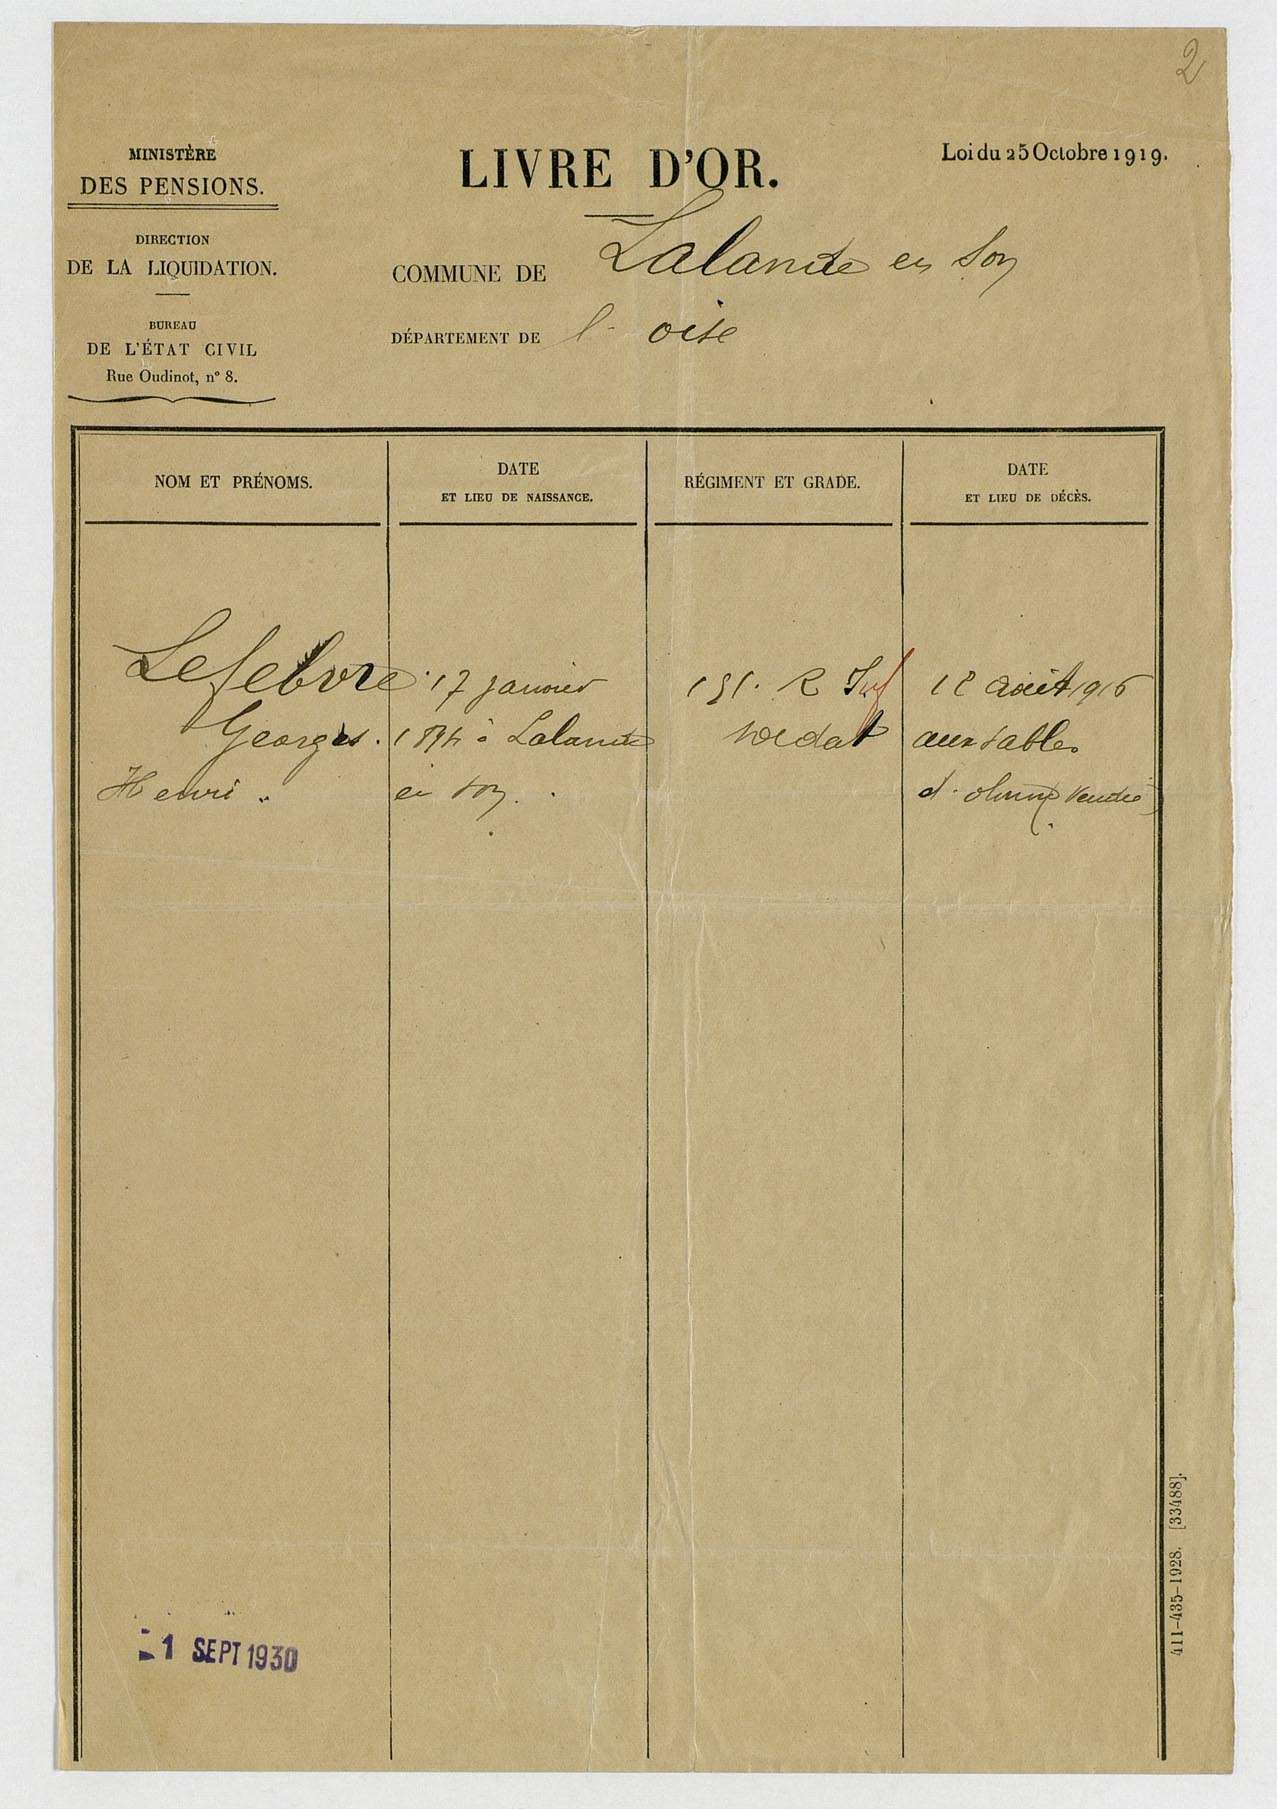 2
MINISTÈRE
DES PENSIONS.
DIRECTION
DE LA LIQUIDATION.
BUREAU
DE L'ÉTAT CIVIL
Rue Oudinot, n° 8.
LIVRE D'OR.
Loi du 25 Octobre 1919.
COMMUNE DE Lalande en Son
DÉPARTEMENT DE l'oise
NOM ET PRÉNOMS.
DATE
ET LIEU DE NAISSANCE.
RÉGIMENT ET GRADE.
DATE
ET LIEU DE DÉCÈS.
Lefebvre
Georges.
Henri
17 janvier
à Lalande
en son.
R Inf
soldat
août 1916
aux sables
d'olonne Vendée
1 SEPT 1930
411-435-1928. [33488].